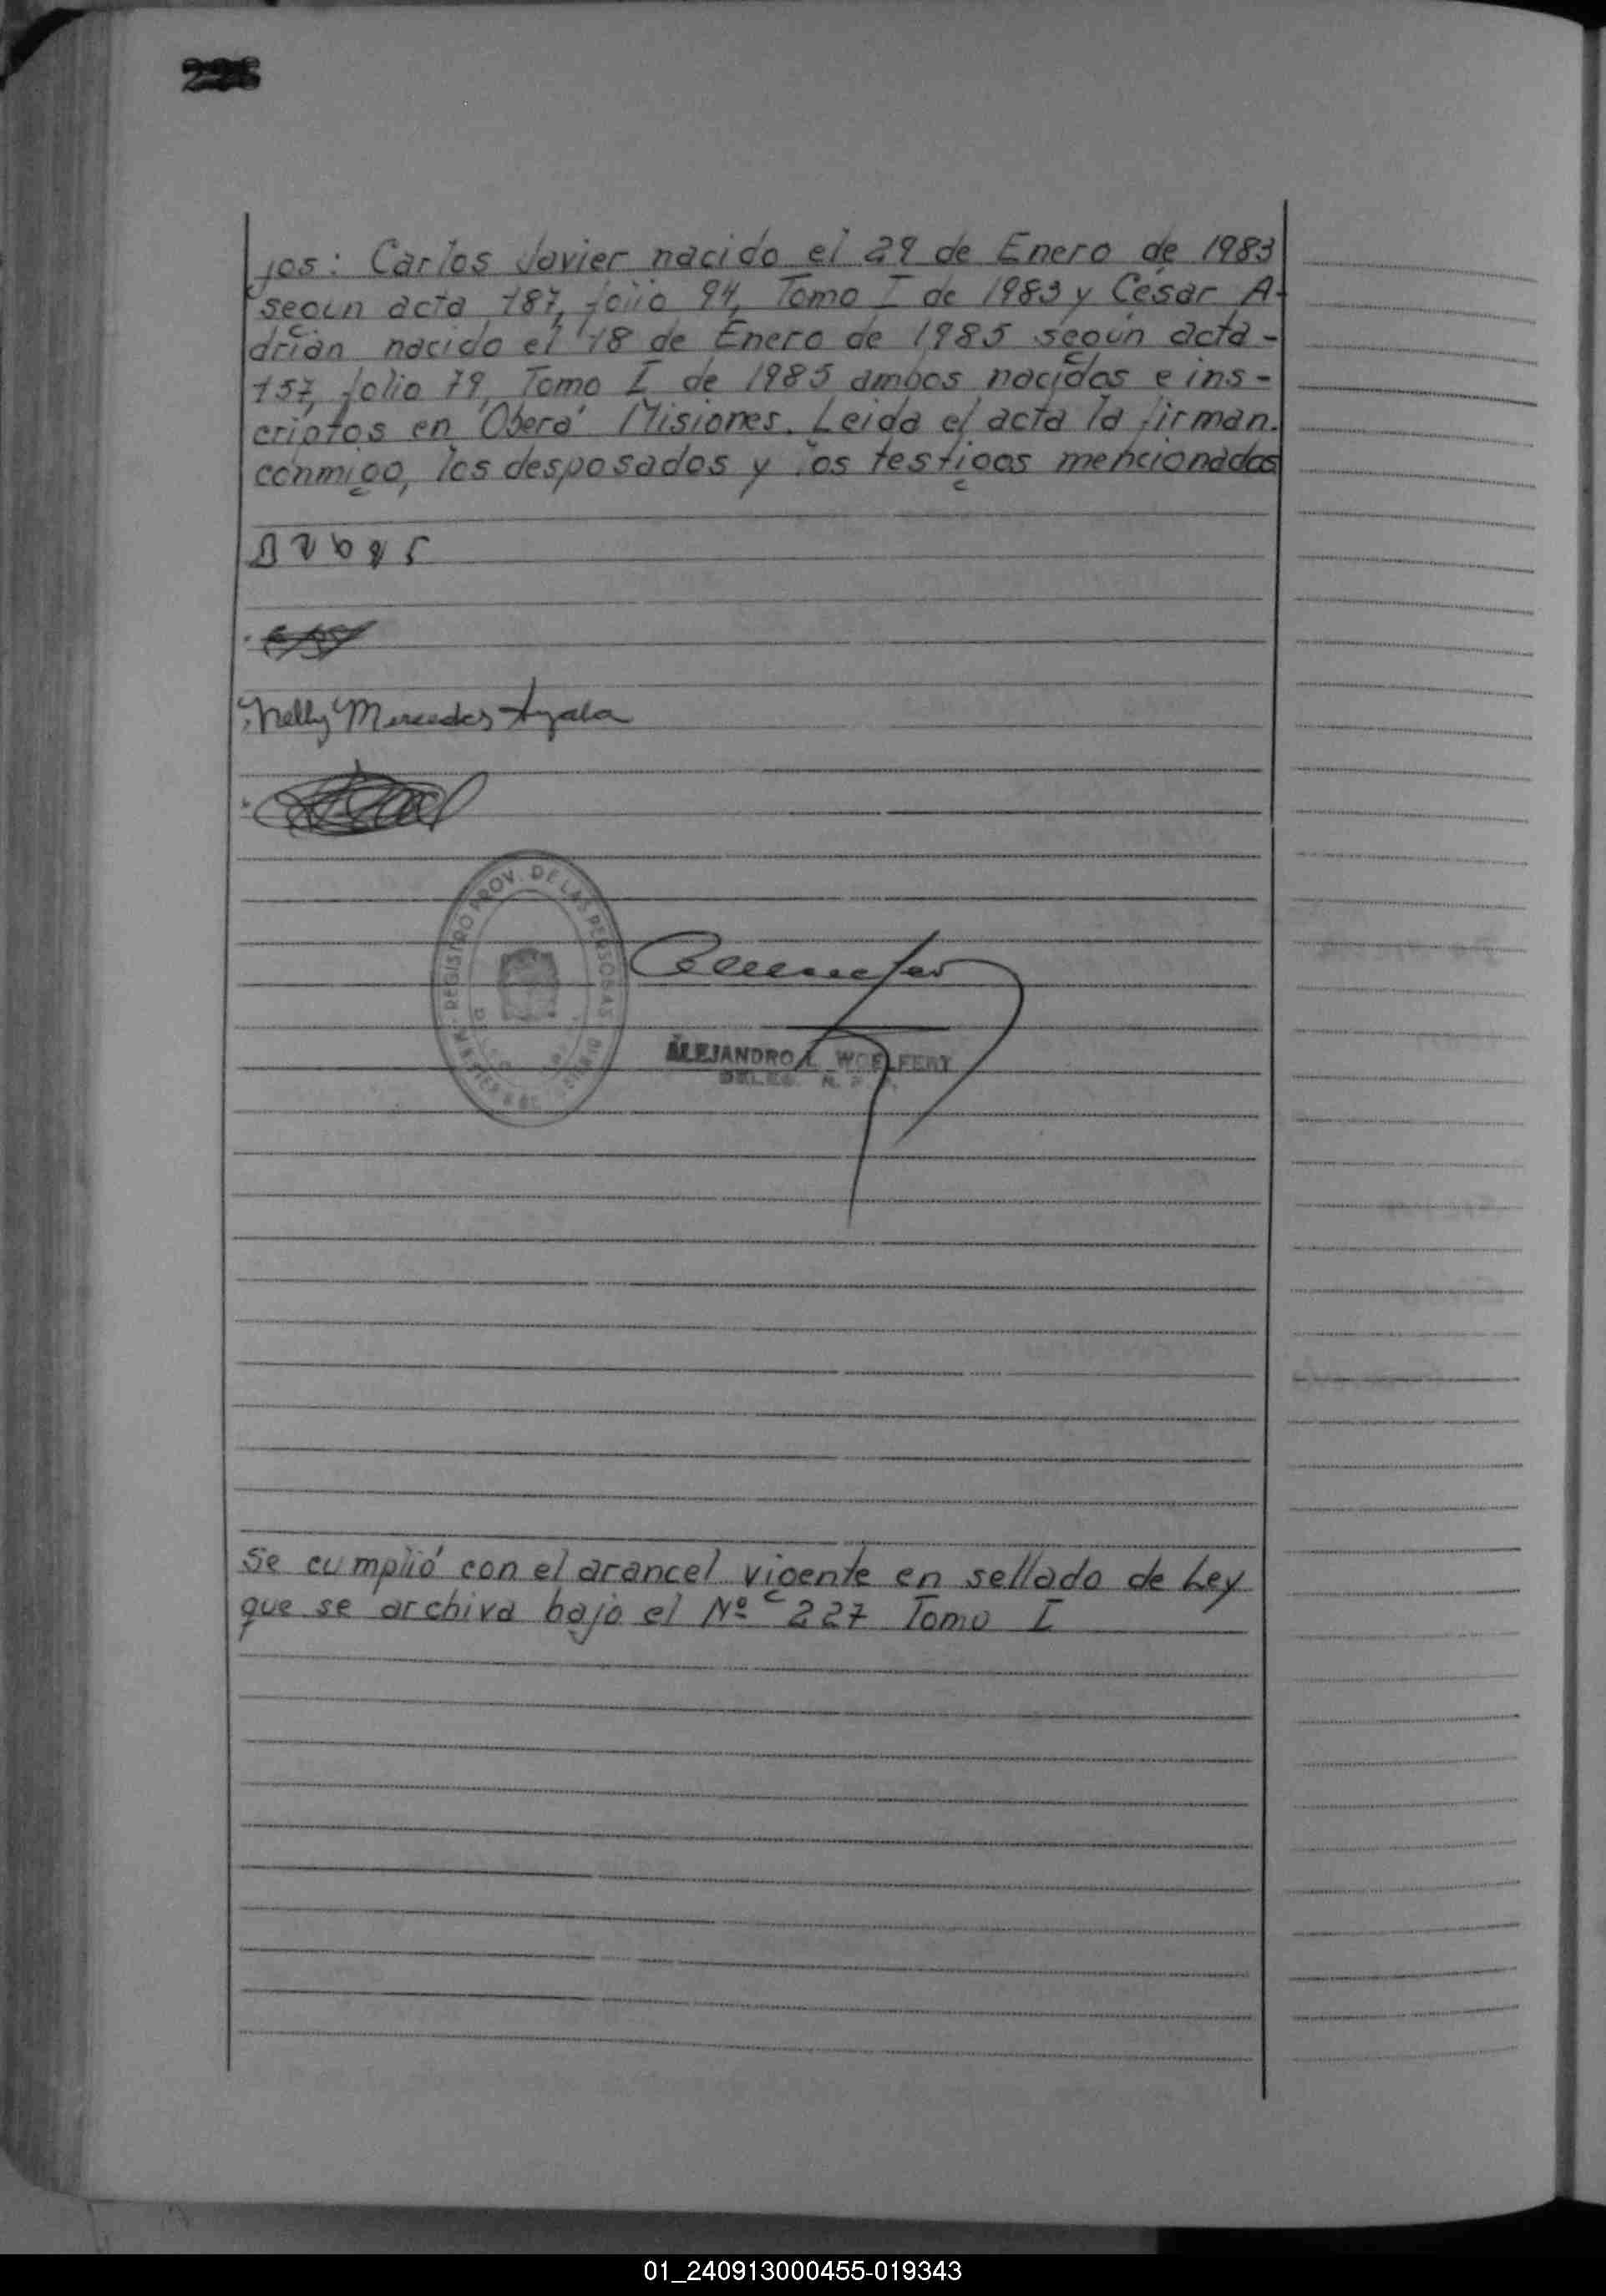 jos: Carlos Javier nacido el 29 de Enero de 1983
según acta 187, folio 94, Tomo I de 1983 y César A-
drian nacido el 18 de Enero de 1985 según acta-
157, folio 79, Tomo I de 1985 ambos nacidos e ins-
criptos en Oberá Misiones. Leida el acta la firman.
conmigo, los desposados y los testigos mencionados
Nelly Mercedes Ayala
REGISTRO PROV. DE LAS PERSONAS
ALEJANDRO L. WOELFERT
DELEG. R. P. P.
Se cumplió con el arancel vigente en sellado de Ley
que se archiva bajo el Nº 227 Tomo I
01_240913000455-019343